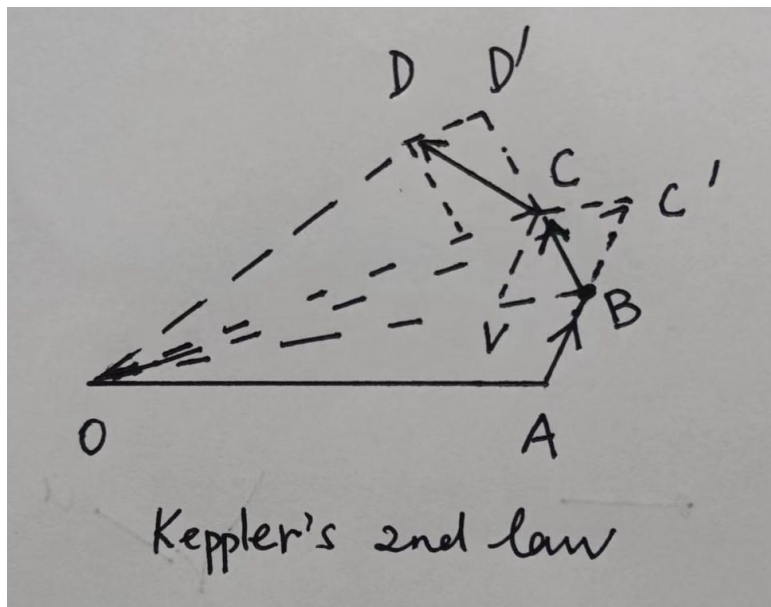 D D'
C C'
B
V
O A
Keppler's 2nd law